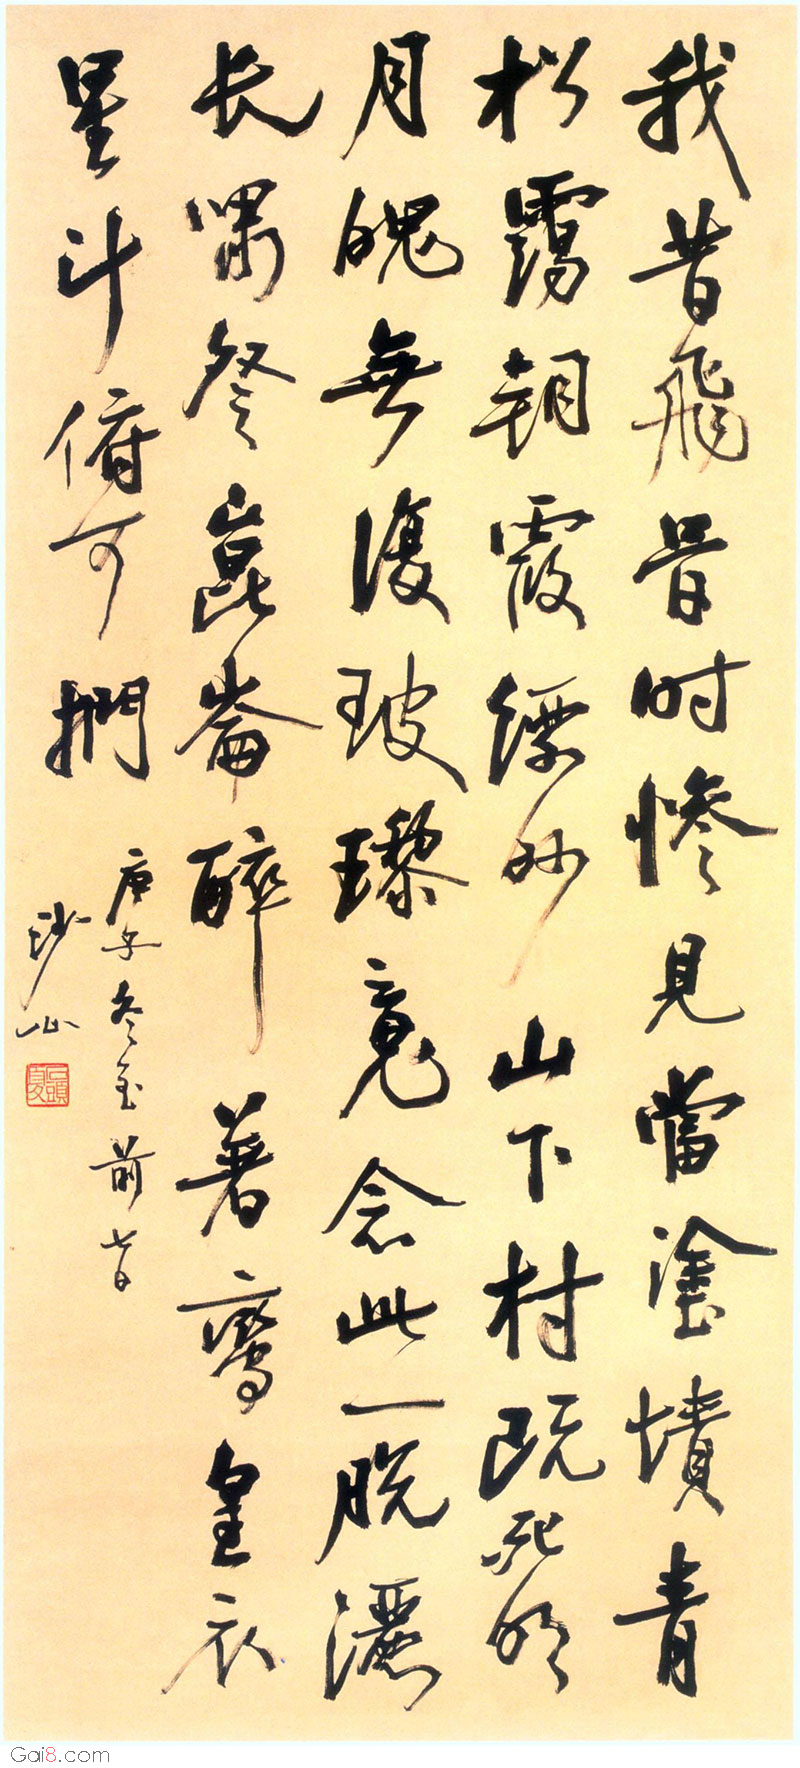 我昔飛骨时惨見當塗墳青
松靄朝霞縹緲山下村既死明
月魄無復玻瓈魂念此一脱灑
长嘯祭崑崙醉著鸞皇衣
星斗俯可捫
庚子冬至前七日
Gai8.com